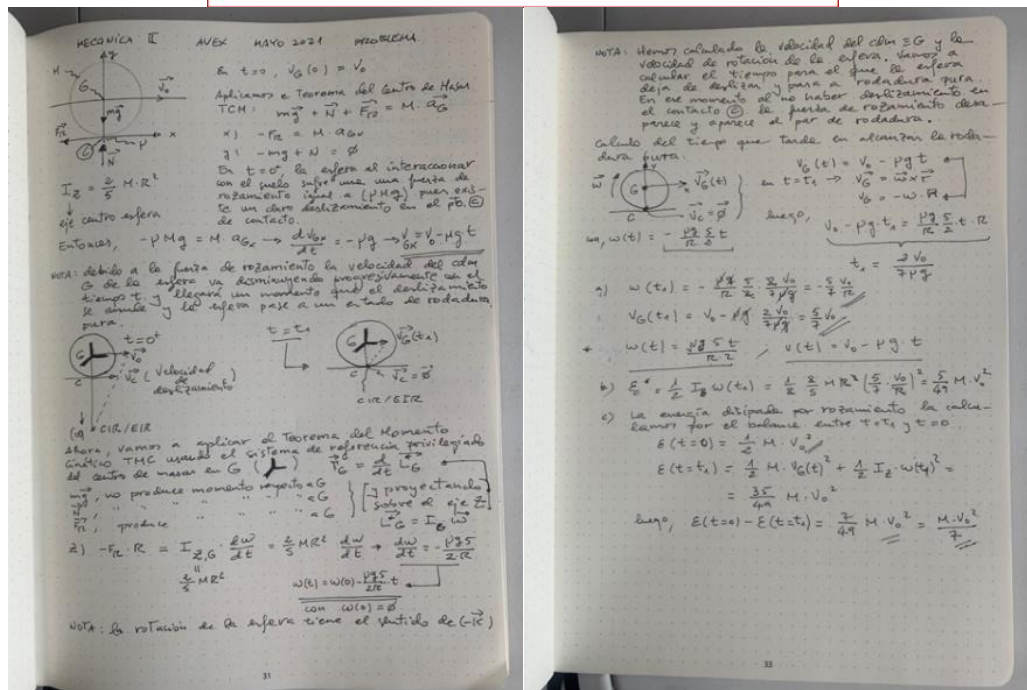 MECANICA II AVEX MAYO 2021 PROBLEMA
En t=0, V_G(0) = V_0
Aplicamos el Teorema del Centro de Masas
TCM: m\vec{g} + \vec{N} + \vec{F_R} = M·\vec{a_G}
x) -F_R = M·a_{Gx}
y) -mg + N = Ø
En t=0⁺, la esfera al interaccionar
con el suelo sufre una una fuerza de
rozamiento igual a (μMg) pues exis-
te un claro deslizamiento en el pto. C
de contacto.
I_Z = 2/5 M·R²
eje centro esfera
Entonces, -μMg = M·a_{Gx} → dV_{Gx}/dt = -μg → V_{Gx} = V_0 - μg·t
NOTA: debido a la fuerza de rozamiento la velocidad del cdm
G de la esfera va disminuyendo progresivamente con el
tiempo t. y llegará un momento que el deslizamiento
se anule y la esfera pase a un estado de rodadura
pura.
t=0⁺
G
\vec{V_0}
C
\vec{V_C} (velocidad de deslizamiento)
(∞) CIR/EIR
t=t_1
G
\vec{V_G}(t_1)
C
\vec{V_C}=Ø
CIR/EIR
Ahora, vamos a aplicar el Teorema del Momento
Cinético TMC usando el sistema de referencia privilegiado
del centro de masas en G
m\vec{g}, no produce momento respecto a G
\vec{N}, " " " " a G
\vec{F_R}, produce " " a G
y proyectando
sobre el eje Z
\vec{L_G} = I_G \vec{ω}
z) -F_R·R = I_{Z,G}·dω/dt = 2/5 MR² dω/dt → dω/dt = -μg5/2R
2/5 MR²
ω(t) = ω(0) - μg5/2R·t
con ω(0)=Ø
NOTA: la rotación de la esfera tiene el sentido de (-\vec{k})
31
NOTA: Hemos calculado la velocidad del cdm ≡ G y la
velocidad de rotación de la esfera. Vamos a
calcular el tiempo para el que la esfera
deja de deslizar y pasa a rodadura pura.
En ese momento al no haber deslizamiento en
el contacto C la fuerza de rozamiento desa-
parece y aparece el par de rodadura.
Calculo del tiempo que tarda en alcanzar la roda-
dura pura.
V_G(t) = V_0 - μgt
en t=t_1 → \vec{V_G} = \vec{ω}×\vec{r}
V_G = -ω·R
\vec{V_G}(t)
\vec{V_C}=Ø
luego, V_0 - μg·t_1 = μg/R 5/2·t·R
con, ω(t) = -μg/R 5/2 t
t_1 = 2V_0/7μg
a) ω(t_1) = -μg/R 5/2 2V_0/7μg = -5/7 V_0/R
V_G(t_1) = V_0 - μg 2V_0/7μg = 5/7 V_0
* ω(t) = μg 5 t/R·2 ; v(t) = V_0 - μg·t
b) E* = 1/2 I_G ω(t_1) = 1/2 2/5 MR² (5/7·V_0/R)² = 5/49 M·V_0²
c) La energía disipada por rozamiento la calcu-
lamos por el balance entre t=t_1 y t=0.
E(t=0) = 1/2 M·V_0²
E(t=t_1) = 1/2 M·V_G(t)² + 1/2 I_Z·ω(t_1)² =
= 35/49 M·V_0²
luego, E(t=0) - E(t=t_1) = 7/49 M·V_0² = M·V_0²/7
33